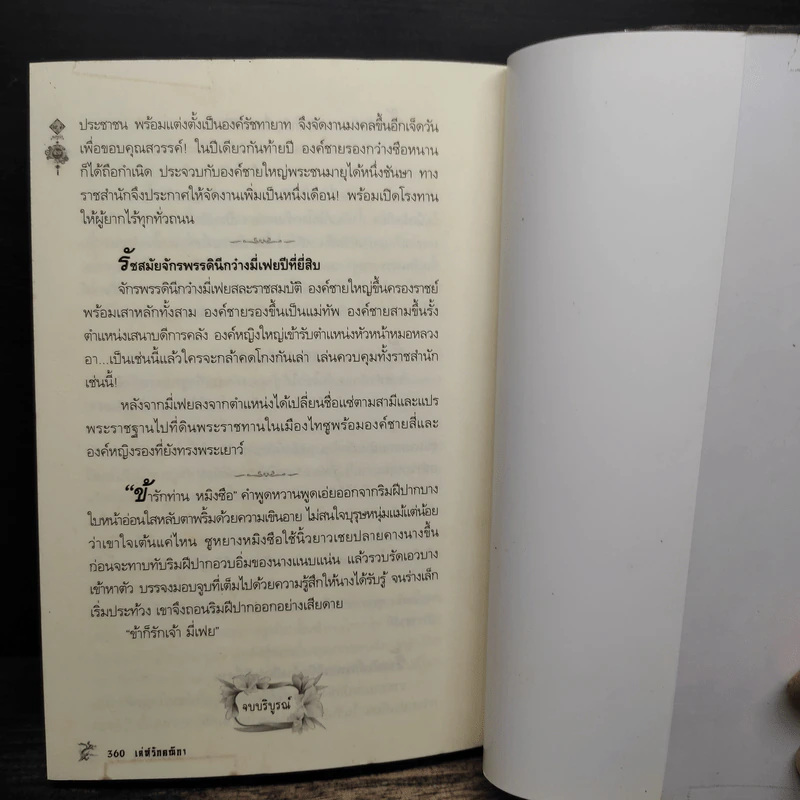 ประชาชน พร้อมแต่งตั้งเป็นองค์รัชทายาท จึงจัดงานมงคลขึ้นอีกเจ็ดวัน
เพื่อขอบคุณสวรรค์! ในปีเดียวกันท้ายปี องค์ชายรองกว่างซือหนาน
ก็ได้ถือกำเนิด ประจวบกับองค์ชายใหญ่พระชนมายุได้หนึ่งชันษา ทาง
ราชสำนักจึงประกาศให้จัดงานเพิ่มเป็นหนึ่งเดือน! พร้อมเปิดโรงทาน
ให้ผู้ยากไร้ทุกทั่วถนน
รัชสมัยจักรพรรดินีกว่างมี่เฟยปีที่ยี่สิบ
จักรพรรดินีกว่างมี่เฟยสละราชสมบัติ องค์ชายใหญ่ขึ้นครองราชย์
พร้อมเสาหลักทั้งสาม องค์ชายรองขึ้นเป็นแม่ทัพ องค์ชายสามขึ้นรั้ง
ตำแหน่งเสนาบดีการคลัง องค์หญิงใหญ่เข้ารับตำแหน่งหัวหน้าหมอหลวง
อา...เป็นเช่นนี้แล้วใครจะกล้าคดโกงกันเล่า เล่นควบคุมทั้งราชสำนัก
เช่นนี้!
หลังจากมี่เฟยลงจากตำแหน่งได้เปลี่ยนชื่อแซ่ตามสามีและแปร
พระราชฐานไปที่ดินพระราชทานในเมืองไทซูพร้อมองค์ชายสี่และ
องค์หญิงรองที่ยังทรงพระเยาว์
“ข้ารักท่าน หมิงซือ” คำพูดหวานพูดเอ่ยออกจากริมฝีปากบาง
ใบหน้าอ่อนใสหลับตาพริ้มด้วยความเขินอาย ไม่สนใจบุรุษหนุ่มแม้แต่น้อย
ว่าเขาใจเต้นแค่ไหน ซูหยางหมิงซือใช้นิ้วยาวเชยปลายคางนางขึ้น
ก่อนจะทาบทับริมฝีปากอวบอิ่มของนางแนบแน่น แล้วรวบรัดเอวบาง
เข้าหาตัว บรรจงมอบจูบที่เต็มไปด้วยความรู้สึกให้นางได้รับรู้ จนร่างเล็ก
เริ่มประท้วง เขาจึงถอนริมฝีปากออกอย่างเสียดาย
“ข้าก็รักเจ้า มี่เฟย”
จบบริบูรณ์
360